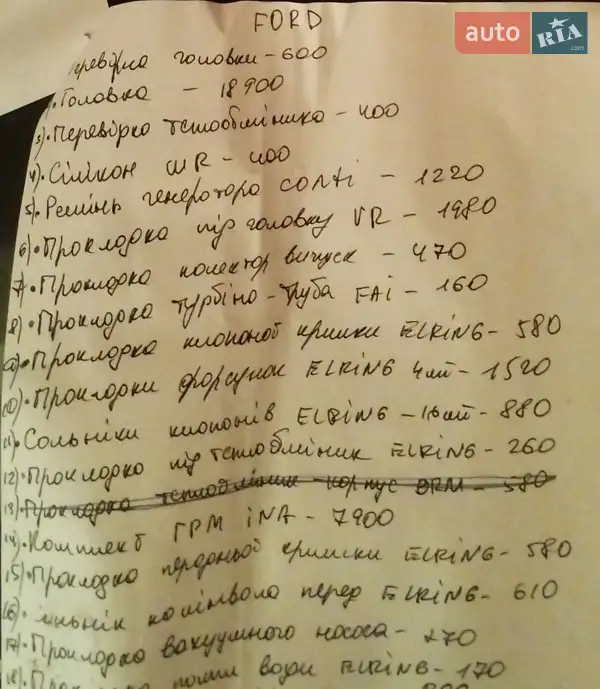 auto RIA .com
FORD
Перевірка головки - 600
Головка - 18900
3). Перевірка теплообмінника - 400
4). Сілікон WR - 400
5). Ремінь генератора CONTi - 1220
6). Прокладка під головку VR - 1980
7). Прокладка колектор випуск - 470
8). Прокладка турбіна - труба FAi - 160
9). Прокладка клапаної кришки ELRiNG - 580
10). Прокладки форсунок ELRiNG 4шт - 1520
11). Сольніки клапанів ELRiNG - 16шт - 880
12). Прокладка під теплобмінник ELRiNG - 260
13). Прокладка теплобмінник корпус BRM - 580
14). Комплект ГРМ iNA - 7900
15). Прокладка передньої кришки ELRiNG - 580
16). колінвала перед ELRiNG - 610
17). Прокладка вакуумного насоса - 270
18). помпи води ELRiNG - 170